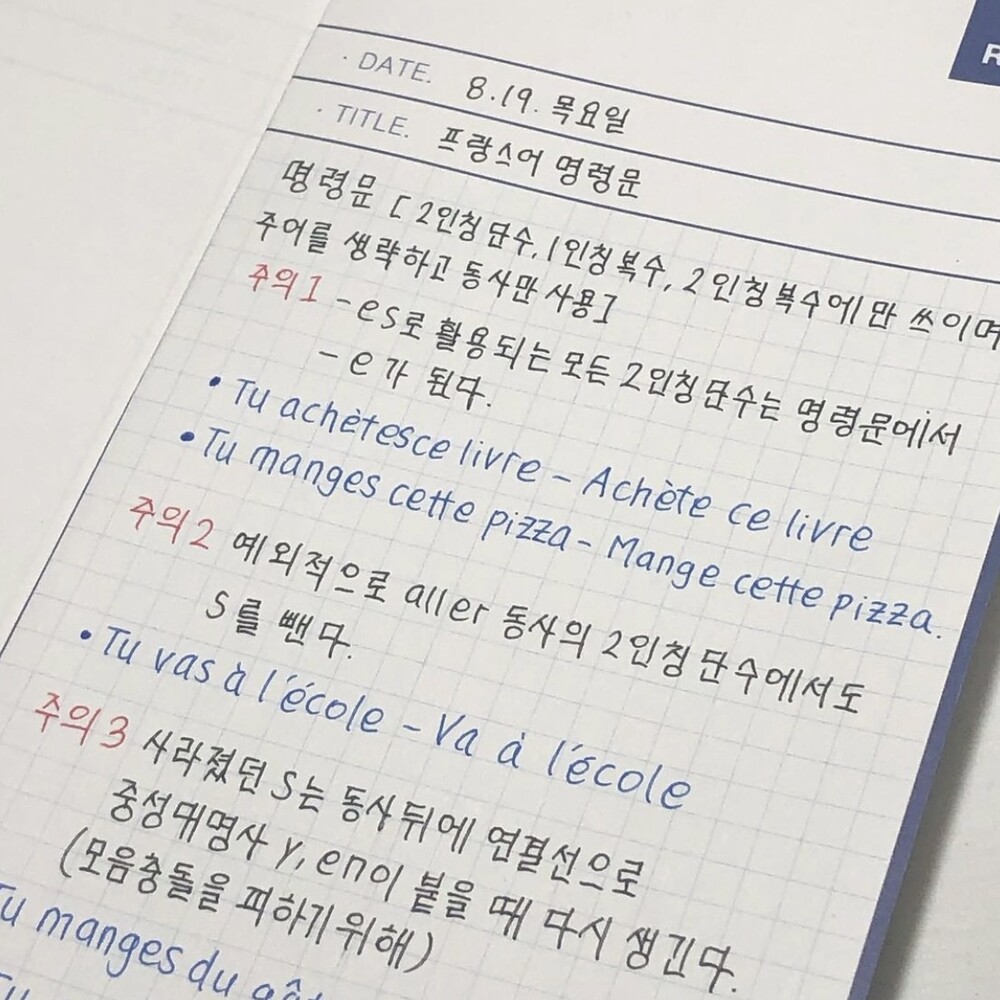 R
· DATE. 8.19. 목요일
· TITLE. 프랑스어 명령문
명령문 [2인칭단수, 1인칭복수, 2인칭복수에만 쓰이며
주어를 생략하고 동사만 사용]
주의1 -es로 활용되는 모든 2인칭단수는 명령문에서
-e가 된다.
• Tu achètesce livre - Achète ce livre
• Tu manges cette pizza - Mange cette pizza.
주의2 예외적으로 aller 동사의 2인칭단수에서도
S를 뺀다.
• Tu vas à l'école - Va à l'école
주의3 사라졌던 S는 동사뒤에 연결선으로
중성대명사 y, en이 붙을 때 다시 생긴다.
(모음충돌을 피하기위해)
Tu manges du
Tu